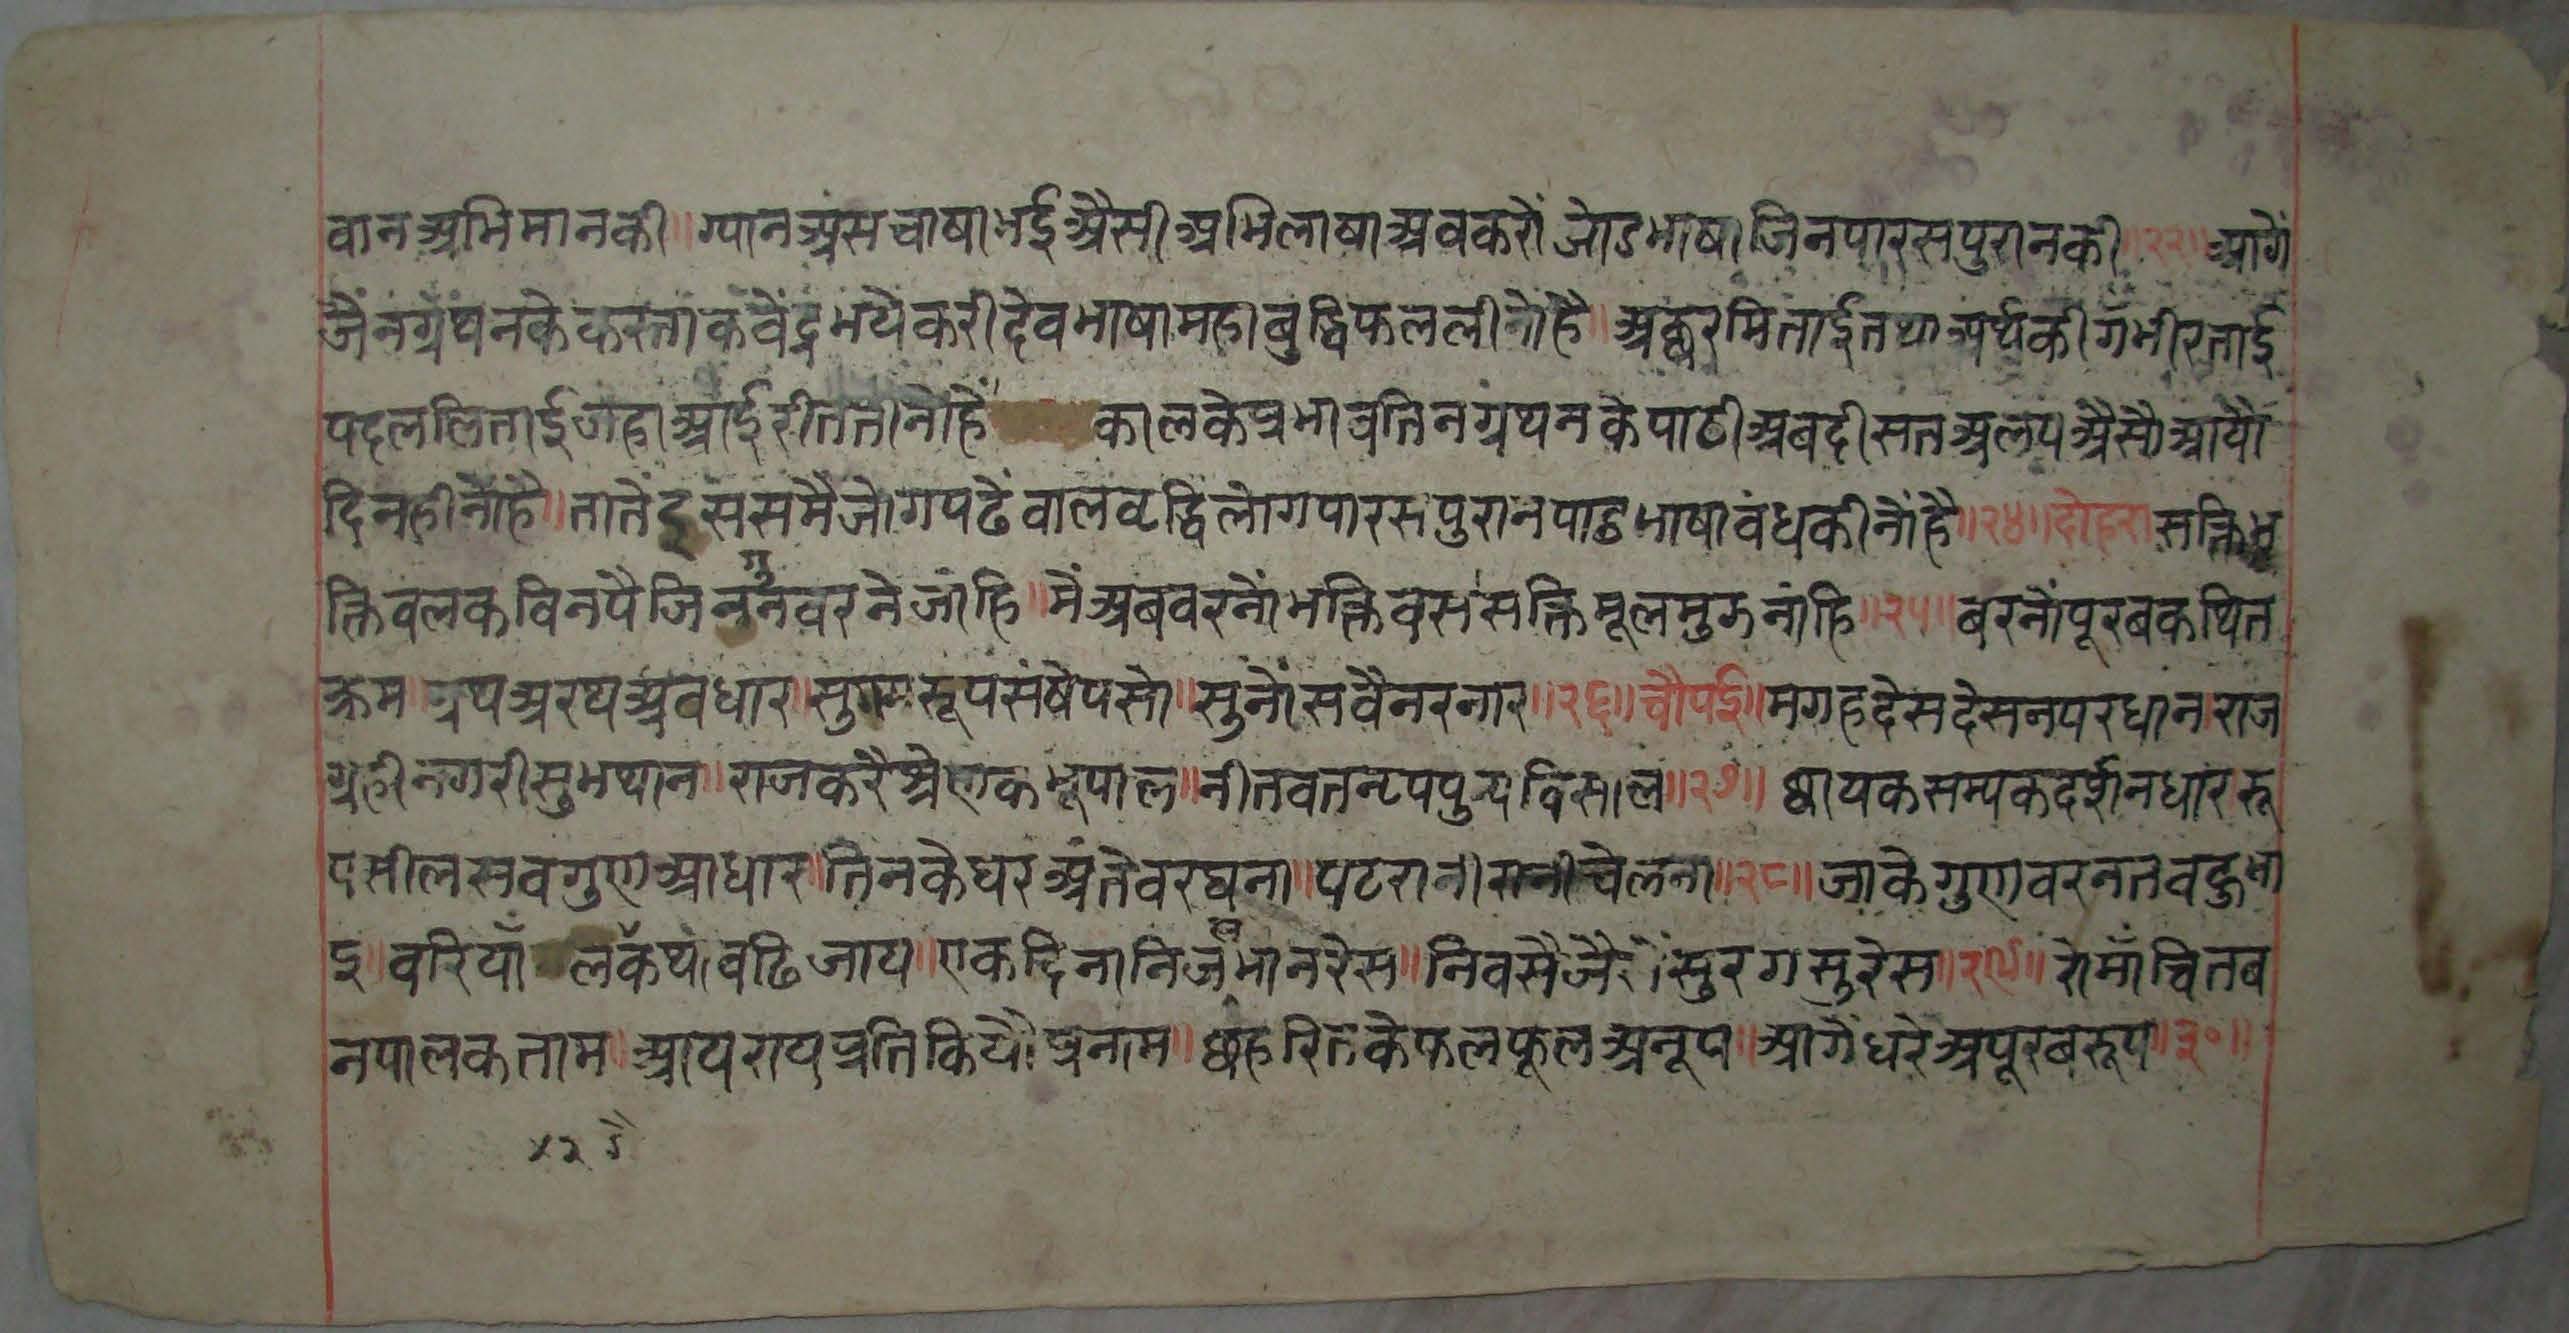 वानअभिमानकी॥ग्यानअंसचाषाभईअैसीअभिलाषाअवकरोंजोडभाषाजिनपारसपुरानकी॥२२॥आगें
जैंनग्रंथनकेकरताकवेंद्रभयेकरीदेवभाषामहाबुद्धिफललीनोहै॥अछ्यरमिताईतथाअर्थकीगँभीरताई
पदललिताईजहाआईरीततीनोहैं कालकेप्रभावतिनग्रंथनकेपाठीअबदीसतअलपअैसौआयौ
दिनहीनोहै॥तातेंइससमैंजोगपढेंवालवृद्धिलोगपारसपुरानपाठभाषावंधकीनोंहै॥२४॥दोहरासक्तिभ
क्तिवलकविनपैजिनगुनवरनेजांहि॥मेंअबवरनोंभक्तिवससक्तिमूलमुझनांहि॥२५॥बरनोंपूरबकथित
क्रम॥ग्रंथअरथअवधार॥सुगमरूपसंषेपसो॥सुंनोंसवैनरनार॥२६॥चौपई॥मगहदेसदेसनपरधान॥राज
ग्रहीनगरीसुभथान॥राजकरैश्रेणकभूपाल॥नीतवतनृपपुन्यविसाल॥२७॥छायकसम्यकदर्शनधाररू
पसीलसवगुणआधार॥तिनकेघरअंतेवरघना॥पटरानीरानीचेलना॥२८॥जाकेगुणवरनतवहुभा
इ॥वरियाँ लॅकथावढिजाय॥एकदिनानिजसभानरेस॥निवसैजैसेंसुरगसुरेस॥२९॥रोमाँचितब
नपालकताम॥आयरायप्रतिकियौप्रनाम॥छहरितकेफलफूलअनूप॥आगेंधरेअपूरबरूप॥३०॥